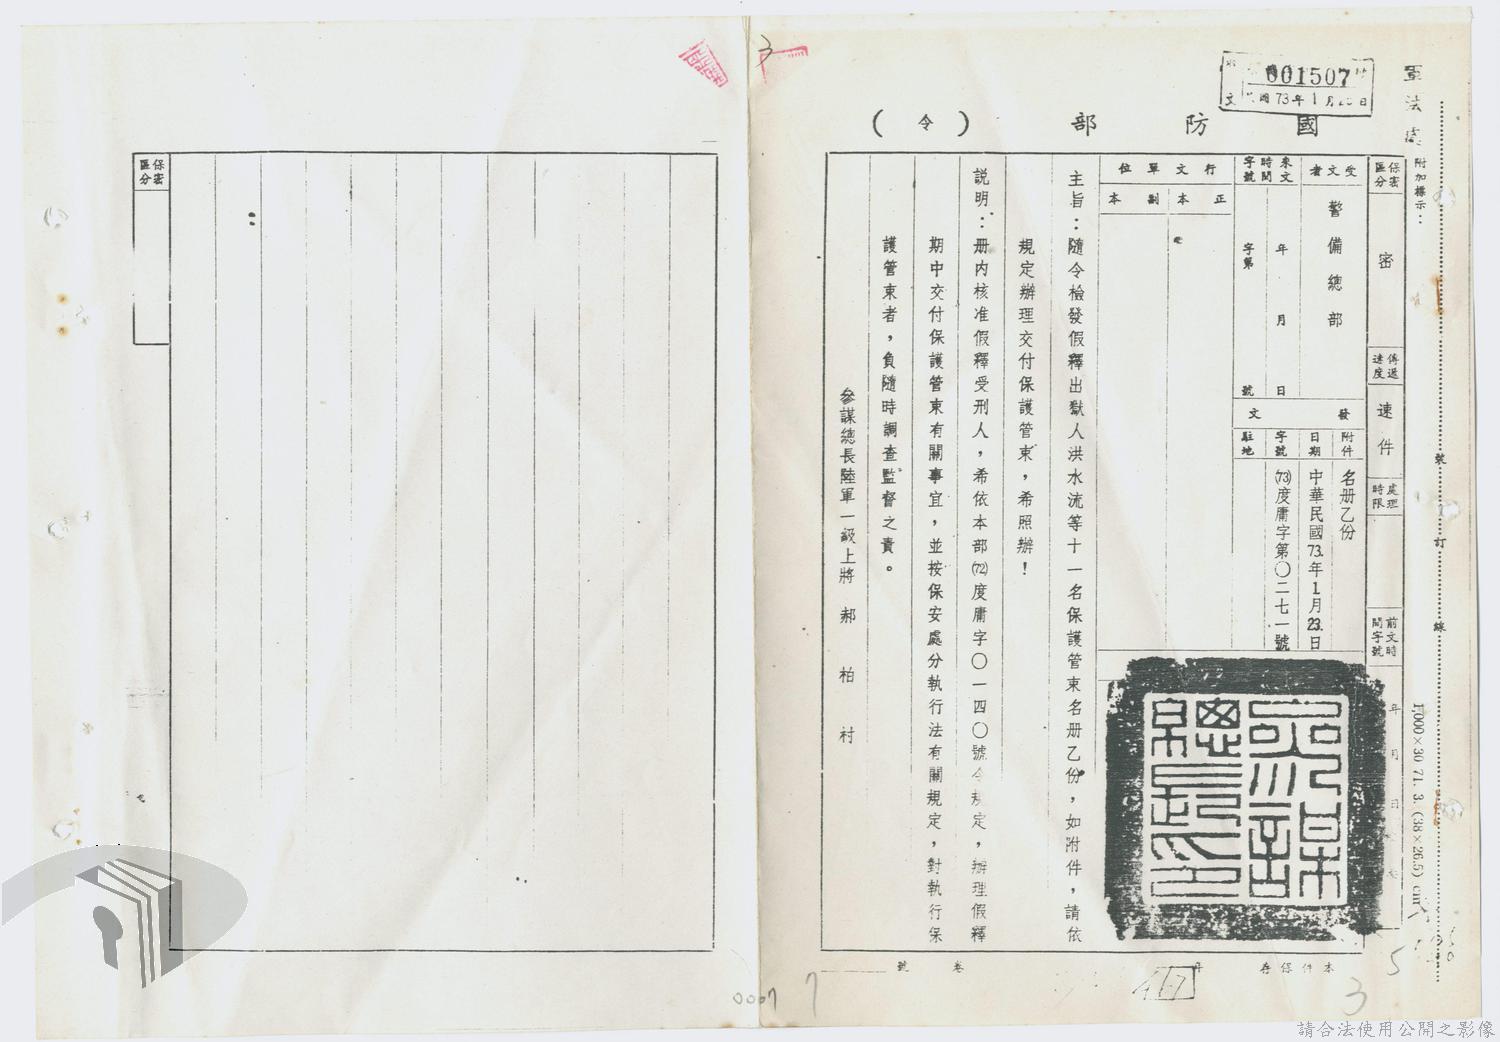 軍法處
附加標示：
001507
國73年1月23日
國防部（令）
保密區分
密
傳遞速度
速件
處理時限
前文時間字號
年月日
受文者
警備總部
來文時間字號
年月日
字第號
行文單位
正本
副本
發文
附件
名册乙份
日期
中華民國73.年1.月23.日
字號
(73)度庸字第〇二七一號
駐地
主旨：隨令檢發假釋出獄人洪水流等十一名保護管束名册乙份，如附件，請依
規定辦理交付保護管束，希照辦！
説明：册內核准假釋受刑人，希依本部(72)度庸字〇一四〇號令規定，辦理假釋
期中交付保護管束有關事宜，並按保安處分執行法有關規定，對執行保
護管束者，負隨時調查監督之責。
參謀總長陸軍一級上將郝柏村
參謀總長印
裝訂線
1,000×30 71. 3. (38×26.5) cm
本件保存年
卷號
5
3
7
417
3
0007
保密區分
請合法使用公開之影像